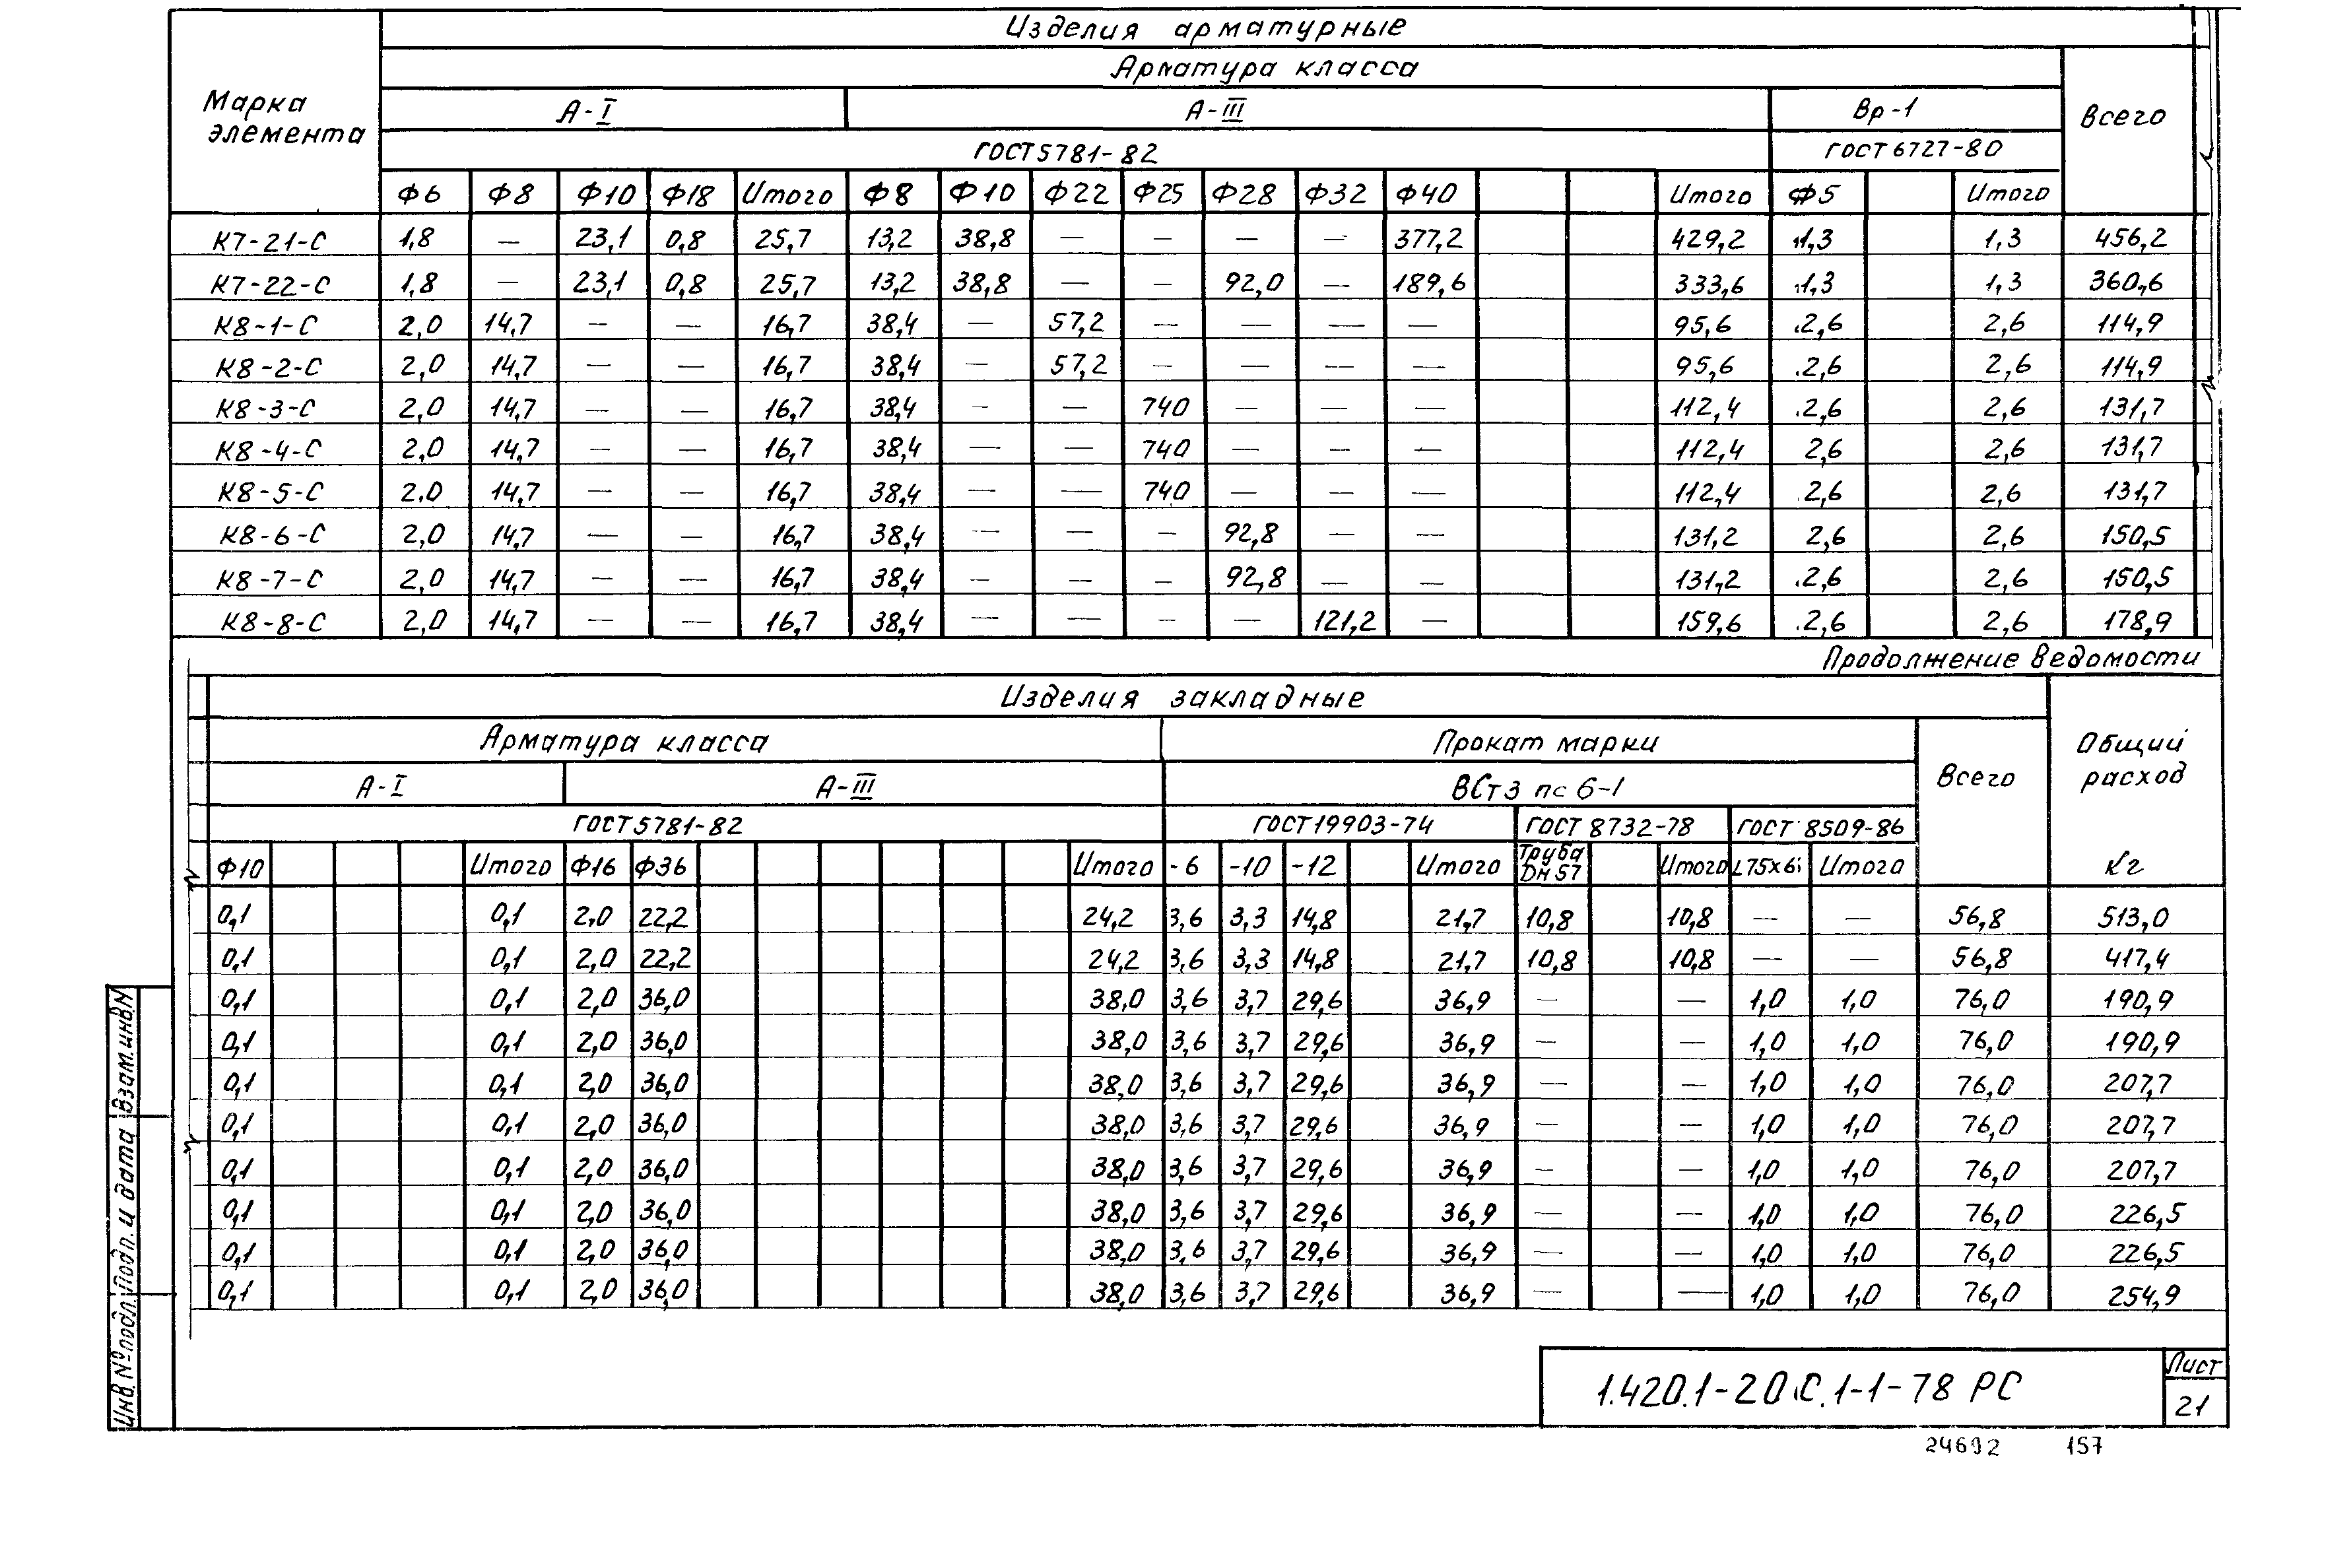 Изделия арматурные
Марка элемента
Арматура класса
Всего
А-I А-III Вр-1
ГОСТ 5781-82 ГОСТ 6727-80
Ф6 Ф8 Ф10 Ф18 Итого Ф8 Ф10 Ф22 Ф25 Ф28 Ф32 Ф40 Итого Ф5 Итого
К7-21-С 1,8 — 23,1 0,8 25,7 13,2 38,8 — — — — 377,2 429,2 1,3 1,3 456,2
К7-22-С 1,8 — 23,1 0,8 25,7 13,2 38,8 — — 92,0 — 189,6 333,6 1,3 1,3 360,6
К8-1-С 2,0 14,7 — — 16,7 38,4 — 57,2 — — — — 95,6 2,6 2,6 114,9
К8-2-С 2,0 14,7 — — 16,7 38,4 — 57,2 — — — — 95,6 2,6 2,6 114,9
К8-3-С 2,0 14,7 — — 16,7 38,4 — — 740 — — — 112,4 2,6 2,6 131,7
К8-4-С 2,0 14,7 — — 16,7 38,4 — — 740 — — — 112,4 2,6 2,6 131,7
К8-5-С 2,0 14,7 — — 16,7 38,4 — — 740 — — — 112,4 2,6 2,6 131,7
К8-6-С 2,0 14,7 — — 16,7 38,4 — — — 92,8 — — 131,2 2,6 2,6 150,5
К8-7-С 2,0 14,7 — — 16,7 38,4 — — — 92,8 — — 131,2 2,6 2,6 150,5
К8-8-С 2,0 14,7 — — 16,7 38,4 — — — — 121,2 — 159,6 2,6 2,6 178,9
Продолжение ведомости
Изделия закладные
Арматура класса Прокат марки Всего Общий расход Кг
А-I А-III ВСт3 пс 6-1
ГОСТ 5781-82 ГОСТ 19903-74 ГОСТ 8732-78 ГОСТ 8509-86
Ф10 Итого Ф16 Ф36 Итого -6 -10 -12 Итого Труба Dн 57 Итого L75x6 Итого
0,1 0,1 2,0 22,2 24,2 3,6 3,3 14,8 21,7 10,8 10,8 — — 56,8 513,0
0,1 0,1 2,0 22,2 24,2 3,6 3,3 14,8 21,7 10,8 10,8 — — 56,8 417,4
0,1 0,1 2,0 36,0 38,0 3,6 3,7 29,6 36,9 — — 1,0 1,0 76,0 190,9
0,1 0,1 2,0 36,0 38,0 3,6 3,7 29,6 36,9 — — 1,0 1,0 76,0 190,9
0,1 0,1 2,0 36,0 38,0 3,6 3,7 29,6 36,9 — — 1,0 1,0 76,0 207,7
0,1 0,1 2,0 36,0 38,0 3,6 3,7 29,6 36,9 — — 1,0 1,0 76,0 207,7
0,1 0,1 2,0 36,0 38,0 3,6 3,7 29,6 36,9 — — 1,0 1,0 76,0 207,7
0,1 0,1 2,0 36,0 38,0 3,6 3,7 29,6 36,9 — — 1,0 1,0 76,0 226,5
0,1 0,1 2,0 36,0 38,0 3,6 3,7 29,6 36,9 — — 1,0 1,0 76,0 226,5
0,1 0,1 2,0 36,0 38,0 3,6 3,7 29,6 36,9 — — 1,0 1,0 76,0 254,9
Инв. № подл. Подп. и дата Взам. инв. N
1.420.1-20.С.1-1-78 РС
Лист
21
24692 157